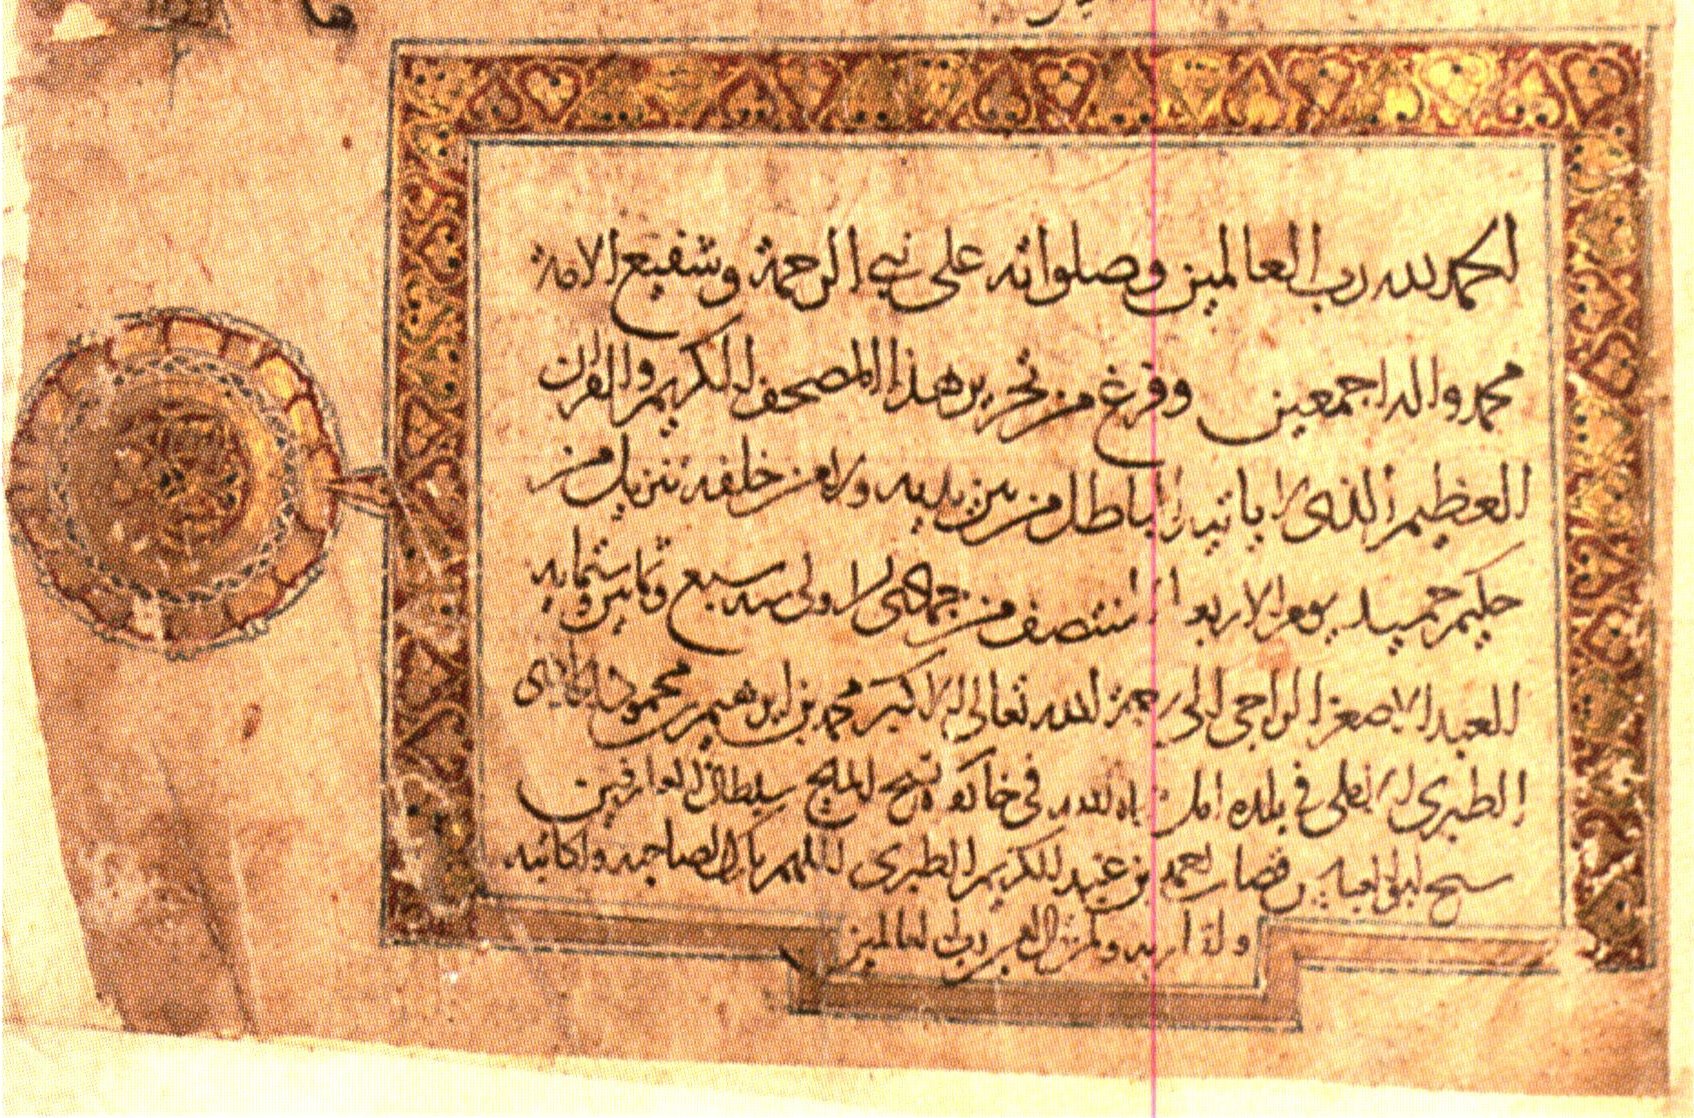 الحمد لله رب العالمين وصلواته على نبي الرحمة وشفيع الامة
محمد واله اجمعين وفرغ من تحرير هذا المصحف الكريم والقران
العظيم الذي لا ياتيه الباطل من بين يديه ولا من خلفه تنزيل من
حكيم حميد يوم الاربعا المنتصف من جمادى الاولى سنه سبع وثمانين وستمايه
العبد الاصغر الراجي الى رحمة الله تعالى الاكبر محمد بن ابرهيم بن محمود
الطبري في بلده في سلطان العارفين
قصاب احمد بن عبد الكريم الطبري اللهم بارك لصاحبه ولكاتبه
ولقاريه رب العالمين